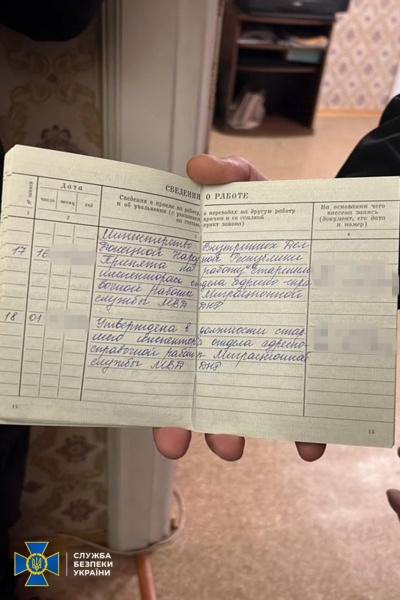 СВЕДЕНИЯ О РАБОТЕ
№ записи
Дата
число
месяц
год
Сведения о приеме на работу, о переводах на другую работу
и об увольнении (с указанием причин и со ссылкой
на статью, пункт закона)
На основании чего
внесена запись
(документ, его дата
и номер)
2
3
4
Министерство Внутренних Дел
Донецкой Народной Республики
17 16 Принята на работу старшим
инспектором отдела адресно-спра
вочной работы Миграционной
службы МВД ДНР
18 01 Утверждена в должности стар
шего инспектора отдела адресно-
справочной работы Миграционной
службы МВД ДНР
14
15
СЛУЖБА
БЕЗПЕКИ
УКРАЇНИ